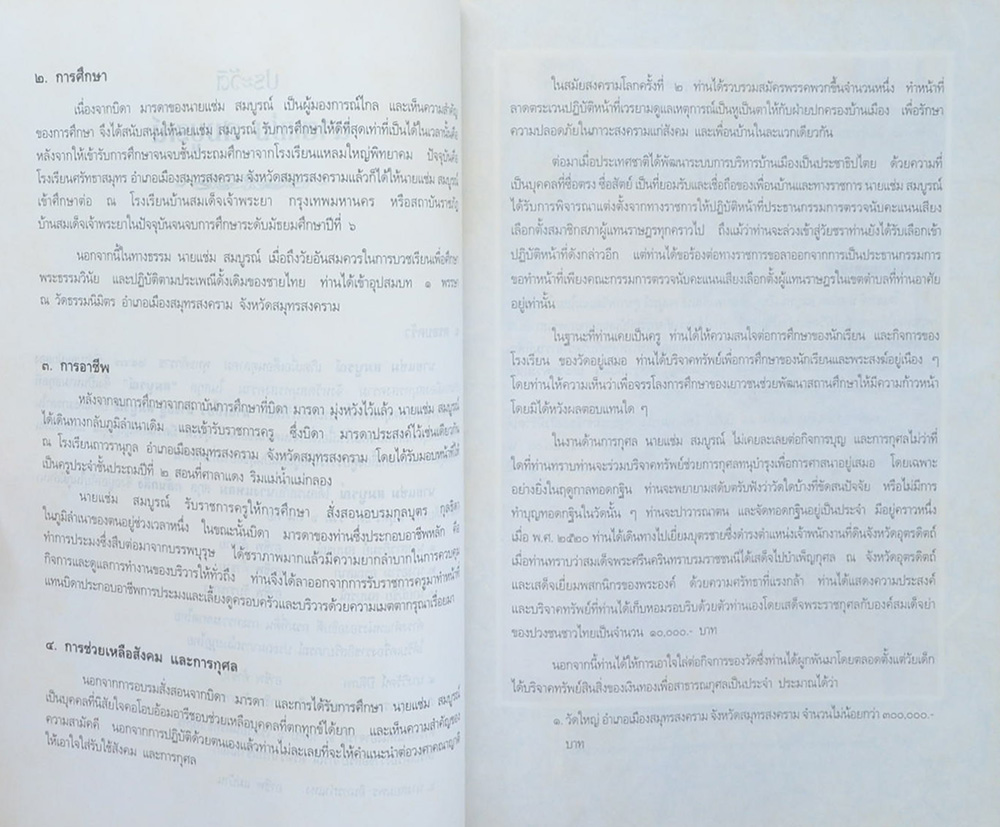 ๒. การศึกษา
เนื่องจากบิดา มารดาของนายแช่ม สมบูรณ์ เป็นผู้มองการณ์ไกล และเห็นความสำคัญ
ของการศึกษา จึงได้สนับสนุนให้นายแช่ม สมบูรณ์ รับการศึกษาให้ดีที่สุดเท่าที่เป็นได้ในเวลานั้นคือ
หลังจากให้เข้ารับการศึกษาจนจบชั้นประถมศึกษาจากโรงเรียนแหลมใหญ่พิทยาคม ปัจจุบันคือ
โรงเรียนศรัทธาสมุทร อำเภอเมืองสมุทรสงคราม จังหวัดสมุทรสงครามแล้วก็ได้ให้นายแช่ม สมบูรณ์
เข้าศึกษาต่อ ณ โรงเรียนบ้านสมเด็จเจ้าพระยา กรุงเทพมหานคร หรือสถาบันราชภัฏ
บ้านสมเด็จเจ้าพระยาในปัจจุบันจนจบการศึกษาระดับมัธยมศึกษาปีที่ ๖
นอกจากนี้ในทางธรรม นายแช่ม สมบูรณ์ เมื่อถึงวัยอันสมควรในการบวชเรียนเพื่อศึกษา
พระธรรมวินัย และปฏิบัติตามประเพณีดั้งเดิมของชายไทย ท่านได้เข้าอุปสมบท ๑ พรรษา
ณ วัดธรรมนิมิตร อำเภอเมืองสมุทรสงคราม จังหวัดสมุทรสงคราม
๓. การอาชีพ
หลังจากจบการศึกษาจากสถาบันการศึกษาที่บิดา มารดา มุ่งหวังไว้แล้ว นายแช่ม สมบูรณ์
ได้เดินทางกลับภูมิลำเนาเดิม และเข้ารับราชการครู ซึ่งบิดา มารดาประสงค์ไว้เช่นเดียวกัน
ณ โรงเรียนถาวรานุกูล อำเภอเมืองสมุทรสงคราม จังหวัดสมุทรสงคราม โดยได้รับมอบหน้าที่ให้
เป็นครูประจำชั้นประถมปีที่ ๒ สอนที่ศาลาแดง ริมแม่น้ำแม่กลอง
นายแช่ม สมบูรณ์ รับราชการครูให้การศึกษา สั่งสอนอบรมกุลบุตร กุลธิดา
ในภูมิลำเนาของตนอยู่ช่วงเวลาหนึ่ง ในขณะนั้นบิดา มารดาของท่านซึ่งประกอบอาชีพหลัก คือ
ทำการประมงซึ่งสืบต่อมาจากบรรพบุรุษ ได้ชราภาพมากแล้วมีความยากลำบากในการควบคุม
กิจการและดูแลการทำงานของบริวารให้ทั่วถึง ท่านจึงได้ลาออกจากการรับราชการครูมาทำหน้าที่
แทนบิดาประกอบอาชีพการประมงและเลี้ยงดูครอบครัวและบริวารด้วยความเมตตากรุณาเรื่อยมา
๔. การช่วยเหลือสังคม และการกุศล
นอกจากการอบรมสั่งสอนจากบิดา มารดา และการได้รับการศึกษา นายแช่ม สมบูรณ์
เป็นบุคคลที่มีนิสัยใจคอโอบอ้อมอารีชอบช่วยเหลือบุคคลที่ตกทุกข์ได้ยาก และเห็นความสำคัญของ
ความสามัคคี นอกจากการปฏิบัติด้วยตนเองแล้วท่านไม่ละเลยที่จะให้คำแนะนำต่อวงศาคณาญาติ
ให้เอาใจใส่รับใช้สังคม และการกุศล
ในสมัยสงครามโลกครั้งที่ ๒ ท่านได้รวบรวมสมัครพรรคพวกขึ้นจำนวนหนึ่ง ทำหน้าที่
ลาดตระเวนปฏิบัติหน้าที่เวรยามดูแลเหตุการณ์เป็นหูเป็นตาให้กับฝ่ายปกครองบ้านเมือง เพื่อรักษา
ความปลอดภัยในภาวะสงครามแก่สังคม และเพื่อนบ้านในละแวกเดียวกัน
ต่อมาเมื่อประเทศชาติได้พัฒนาระบบการบริหารบ้านเมืองเป็นประชาธิปไตย ด้วยความที่
เป็นบุคคลที่ซื่อตรง ซื่อสัตย์ เป็นที่ยอมรับและเชื่อถือของเพื่อนบ้านและทางราชการ นายแช่ม สมบูรณ์
ได้รับการพิจารณาแต่งตั้งจากทางราชการให้ปฏิบัติหน้าที่ประธานกรรมการตรวจนับคะแนนเสียง
เลือกตั้งสมาชิกสภาผู้แทนราษฎรทุกคราวไป ถึงแม้ว่าท่านจะล่วงเข้าสู่วัยชราท่านยังได้รับเลือกเข้า
ปฏิบัติหน้าที่ดังกล่าวอีก แต่ท่านได้ขอร้องต่อทางราชการขอลาออกจากการเป็นประธานกรรมการ
ขอทำหน้าที่เพียงคณะกรรมการตรวจนับคะแนนเสียงเลือกตั้งผู้แทนราษฎรในเขตตำบลที่ท่านอาศัย
อยู่เท่านั้น
ในฐานะที่ท่านเคยเป็นครู ท่านได้ให้ความสนใจต่อการศึกษาของนักเรียน และกิจการของ
โรงเรียน ของวัดอยู่เสมอ ท่านได้บริจาคทรัพย์เพื่อการศึกษาของนักเรียนและพระสงฆ์อยู่เนือง ๆ
โดยท่านให้ความเห็นว่าเพื่อจรรโลงการศึกษาของเยาวชนช่วยพัฒนาสถานศึกษาให้มีความก้าวหน้า
โดยมิได้หวังผลตอบแทนใด ๆ
ในงานด้านการกุศล นายแช่ม สมบูรณ์ ไม่เคยละเลยต่อกิจการบุญ และการกุศลไม่ว่าที่
ใดที่ท่านทราบท่านจะร่วมบริจาคทรัพย์ช่วยการกุศลทนุบำรุงเพื่อการศาสนาอยู่เสมอ โดยเฉพาะ
อย่างยิ่งในฤดูกาลทอดกฐิน ท่านจะพยายามสดับตรับฟังว่าวัดใดบ้างที่ขัดสนปัจจัย หรือไม่มีการ
ทำบุญทอดกฐินในวัดนั้น ๆ ท่านจะปวารณาตน และจัดทอดกฐินอยู่เป็นประจำ มีอยู่คราวหนึ่ง
เมื่อ พ.ศ. ๒๕๒๐ ท่านได้เดินทางไปเยี่ยมบุตรชายซึ่งดำรงตำแหน่งเจ้าพนักงานที่ดินจังหวัดอุตรดิตถ์
เมื่อท่านทราบว่าสมเด็จพระศรีนครินทราบรมราชชนนีได้เสด็จไปบำเพ็ญกุศล ณ จังหวัดอุตรดิตถ์
และเสด็จเยี่ยมพสกนิกรของพระองค์ ด้วยความศรัทธาที่แรงกล้า ท่านได้แสดงความประสงค์
และบริจาคทรัพย์ที่ท่านได้เก็บหอมรอบริบด้วยตัวท่านเองโดยเสด็จพระราชกุศลกับองค์สมเด็จย่า
ของปวงชนชาวไทยเป็นจำนวน ๑๐,๐๐๐.- บาท
นอกจากนี้ท่านได้ให้การเอาใจใส่ต่อกิจการของวัดซึ่งท่านได้ผูกพันมาโดยตลอดตั้งแต่วัยเด็ก
ได้บริจาคทรัพย์สินสิ่งของเงินทองเพื่อสาธารณกุศลเป็นประจำ ประมาณได้ว่า
๑. วัดใหญ่ อำเภอเมืองสมุทรสงคราม จังหวัดสมุทรสงคราม จำนวนไม่น้อยกว่า ๓๐๐,๐๐๐.-
บาท